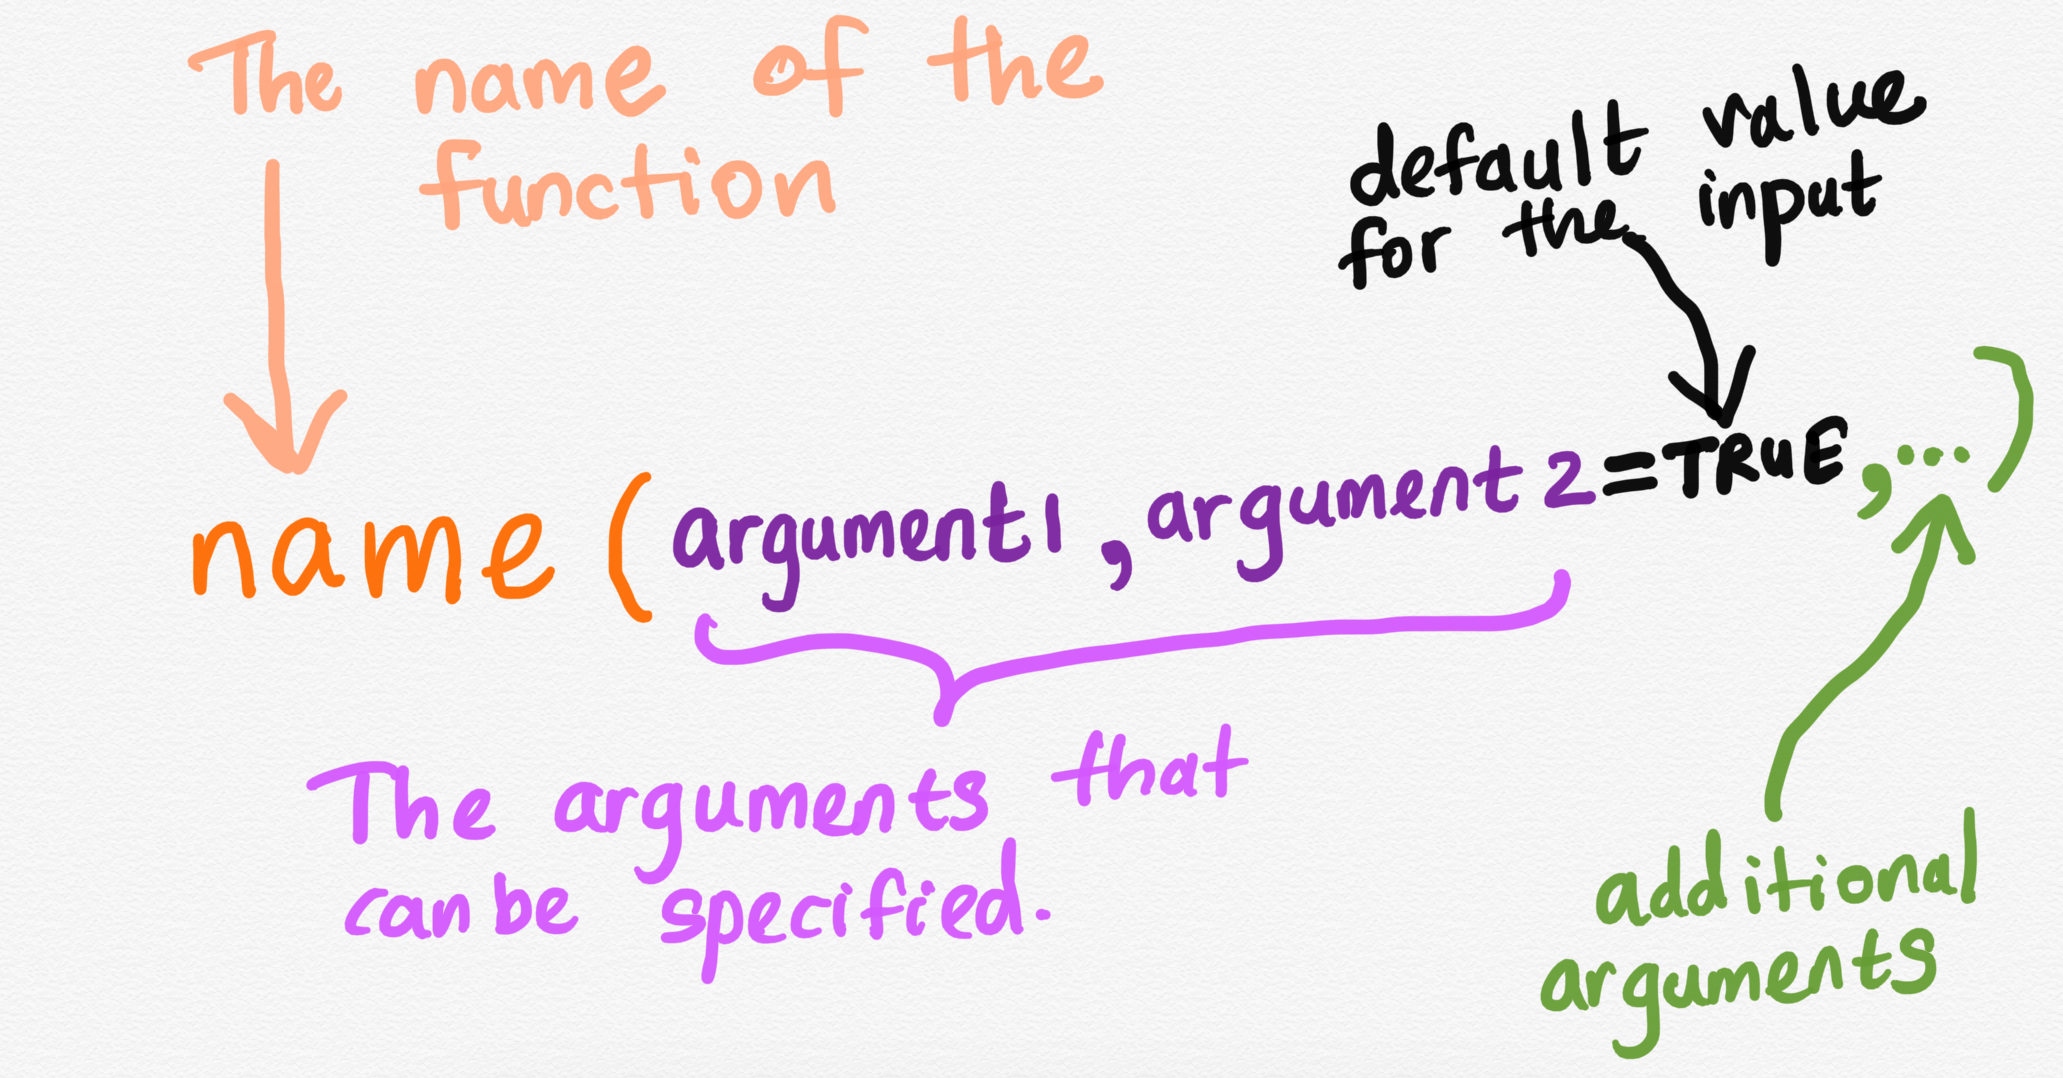 The name of the
function
default value
for the input
name (argument1, argument2=TRUE, ...)
The arguments that
can be specified.
additional
arguments